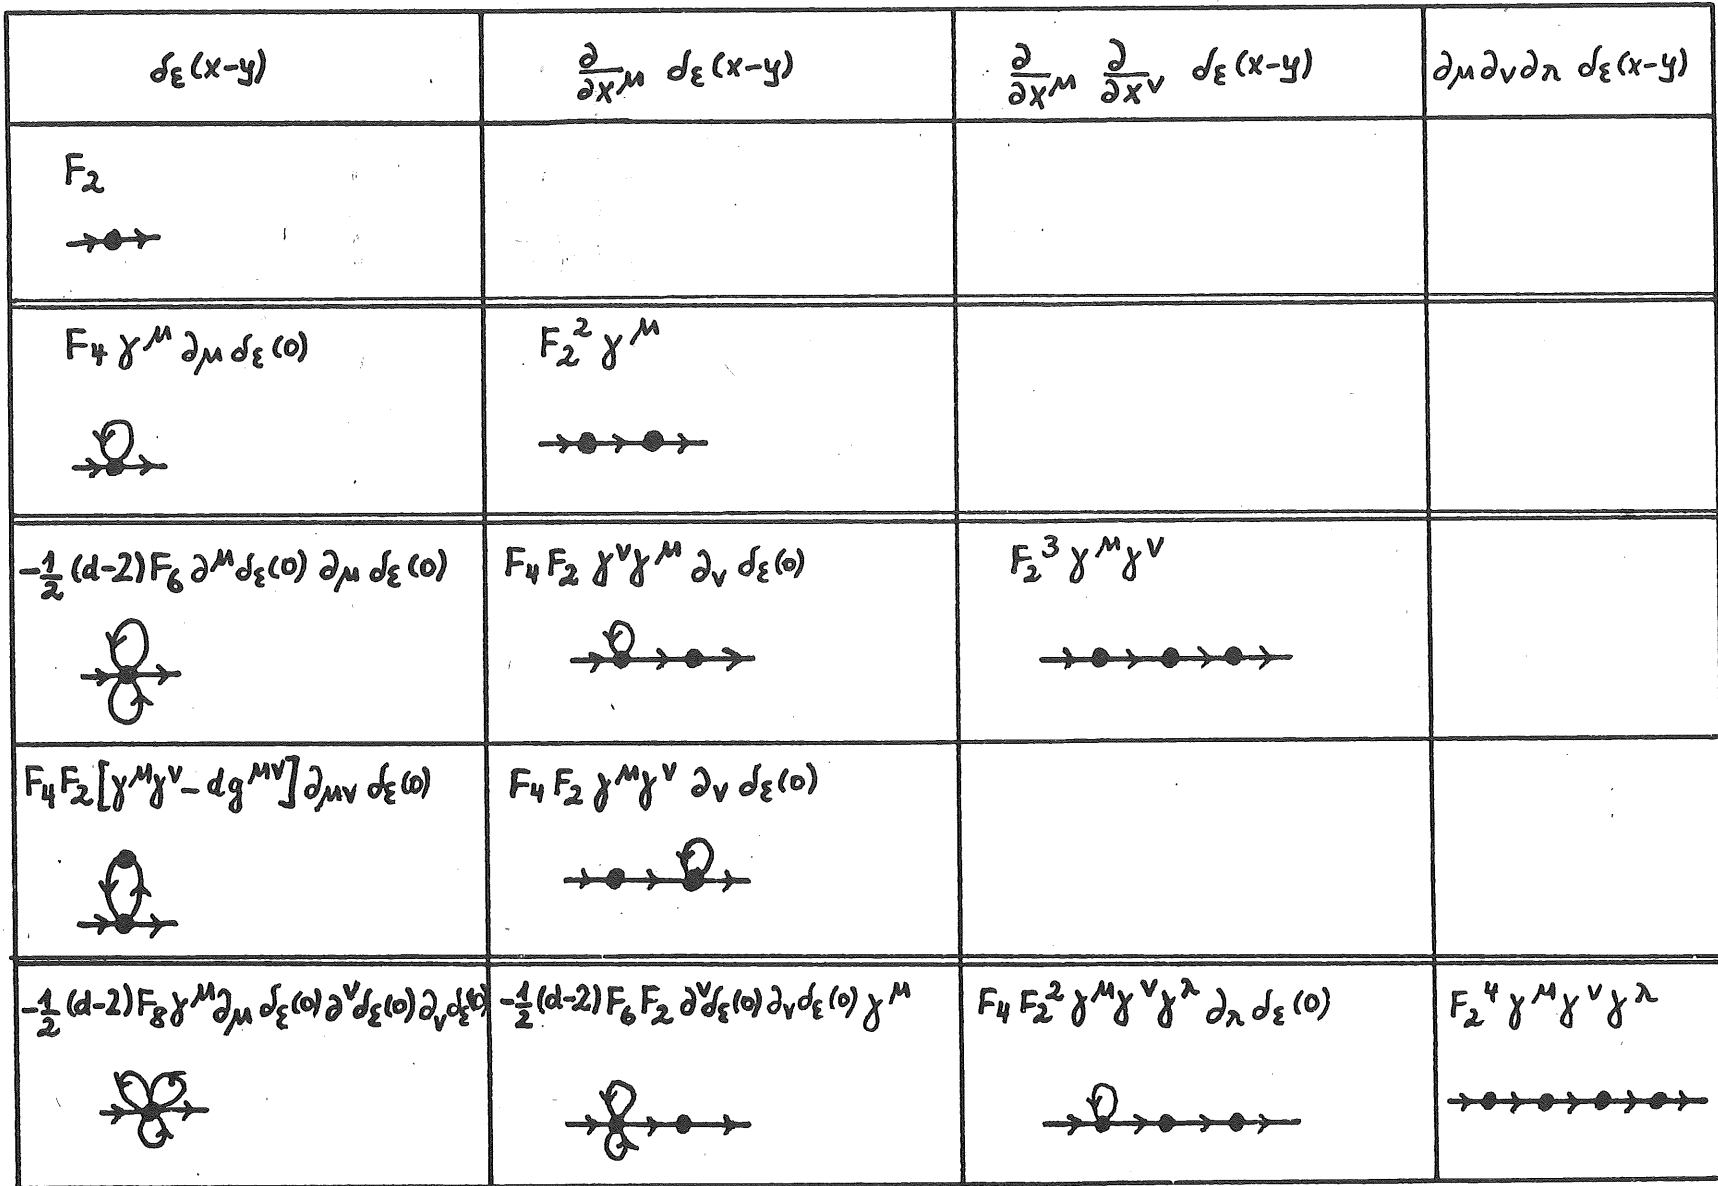 δ_ε(x-y)
∂/∂x^μ δ_ε(x-y)
∂/∂x^μ ∂/∂x^ν δ_ε(x-y)
∂_μ∂_ν∂_λ δ_ε(x-y)
F_2
F_4 γ^μ ∂_μ δ_ε(0)
F_2^2 γ^μ
-1/2 (d-2) F_6 ∂^μ δ_ε(0) ∂_μ δ_ε(0)
F_4 F_2 γ^ν γ^μ ∂_ν δ_ε(0)
F_2^3 γ^μ γ^ν
F_4 F_2 [γ^μ γ^ν - d g^{μν}] ∂_{μν} δ_ε(0)
F_4 F_2 γ^μ γ^ν ∂_ν δ_ε(0)
-1/2 (d-2) F_8 γ^μ ∂_μ δ_ε(0) ∂^ν δ_ε(0) ∂_ν δ_ε(0)
-1/2 (d-2) F_6 F_2 ∂^ν δ_ε(0) ∂_ν δ_ε(0) γ^μ
F_4 F_2^2 γ^μ γ^ν γ^λ ∂_λ δ_ε(0)
F_2^4 γ^μ γ^ν γ^λ